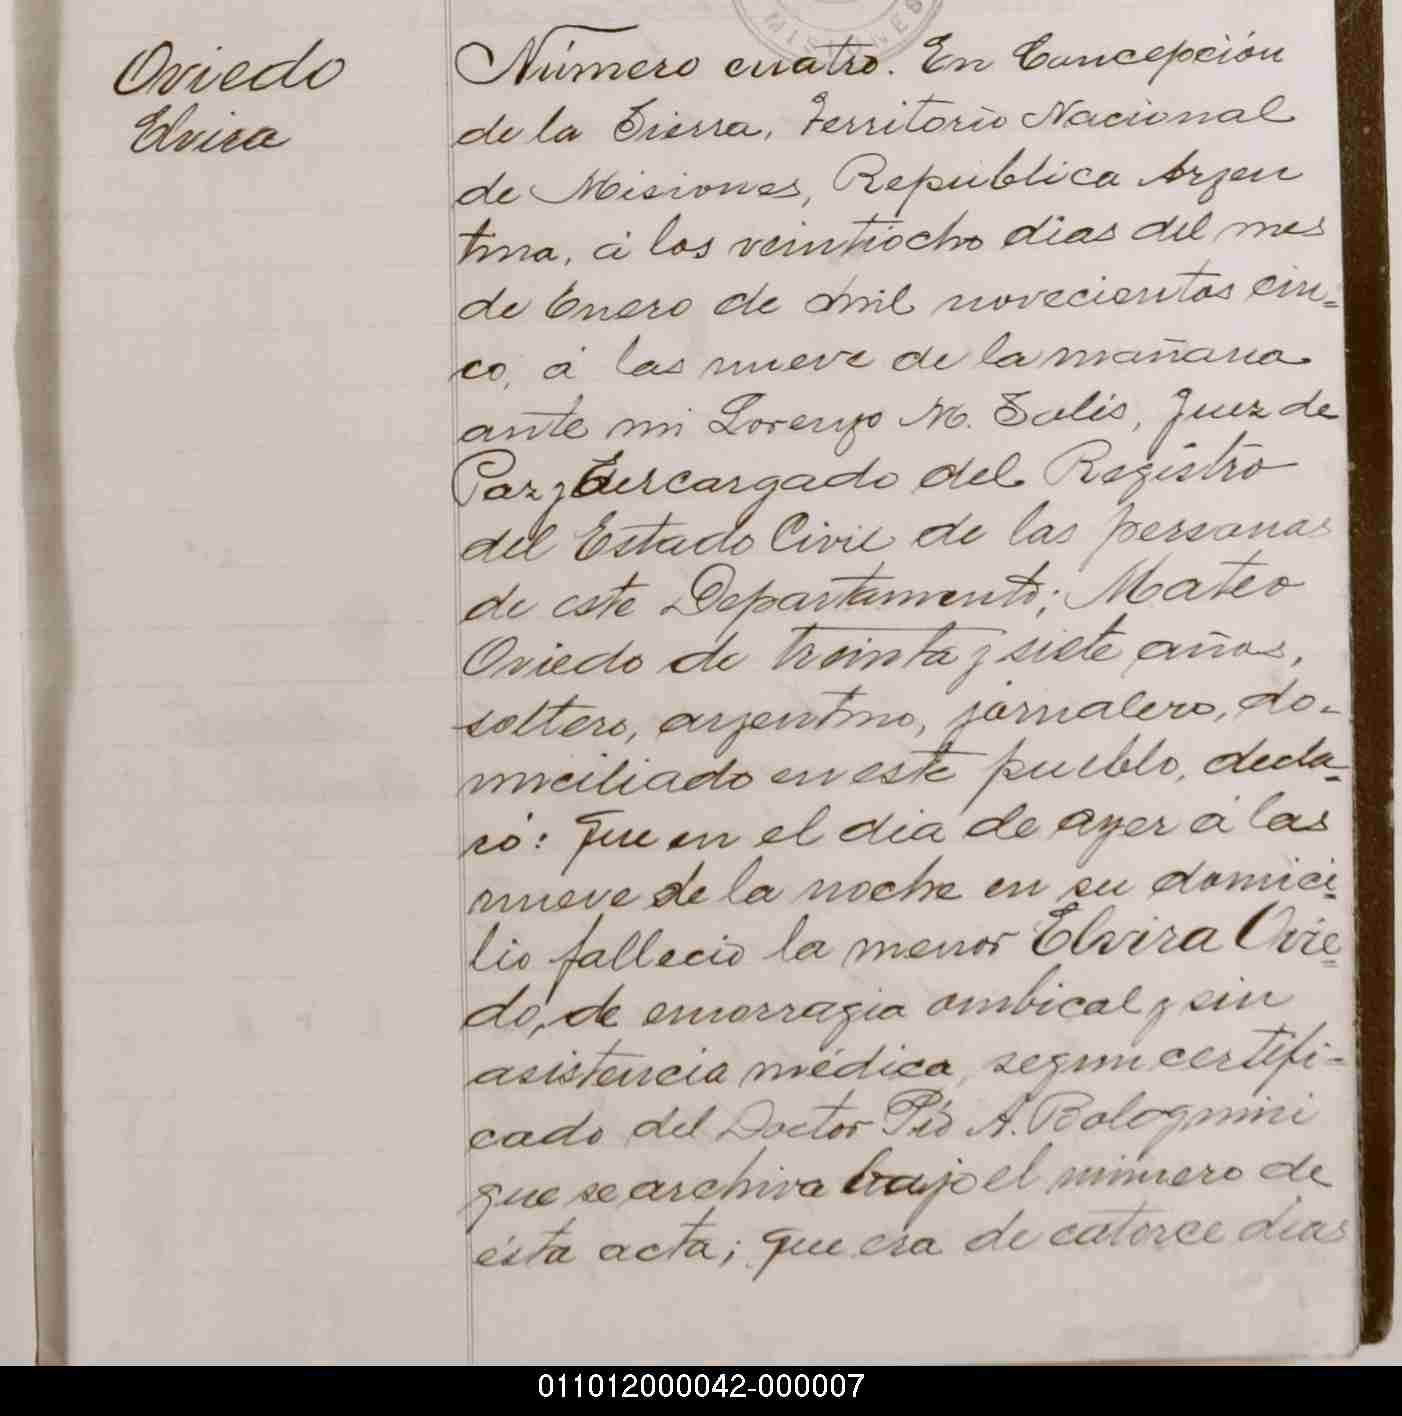 MISIONES
Oviedo
Elvira
Número cuatro. En Concepción
de la Sierra, Territorio Nacional
de Misiones, República Argen
tina, á los veintiocho dias del mes
de Enero de mil novecientos cin-
co, á las nueve de la mañana
ante mi Lorenzo M. Solis, Juez de
Paz y Encargado del Registro
del Estado Civil de las personas
de este Departamento; Mateo
Oviedo de treinta y siete años,
soltero, argentino, jornalero, do-
miciliado en este pueblo, decla-
ró: Que en el dia de ayer á las
nueve de la noche en su domici-
lio falleció la menor Elvira Ovie-
do, de emorragia ombical y sin
asistencia médica, segun certifi-
cado del Doctor Pio A. Bolognini
que se archiva bajo el número de
ésta acta; Que era de catorce dias
011012000042-000007